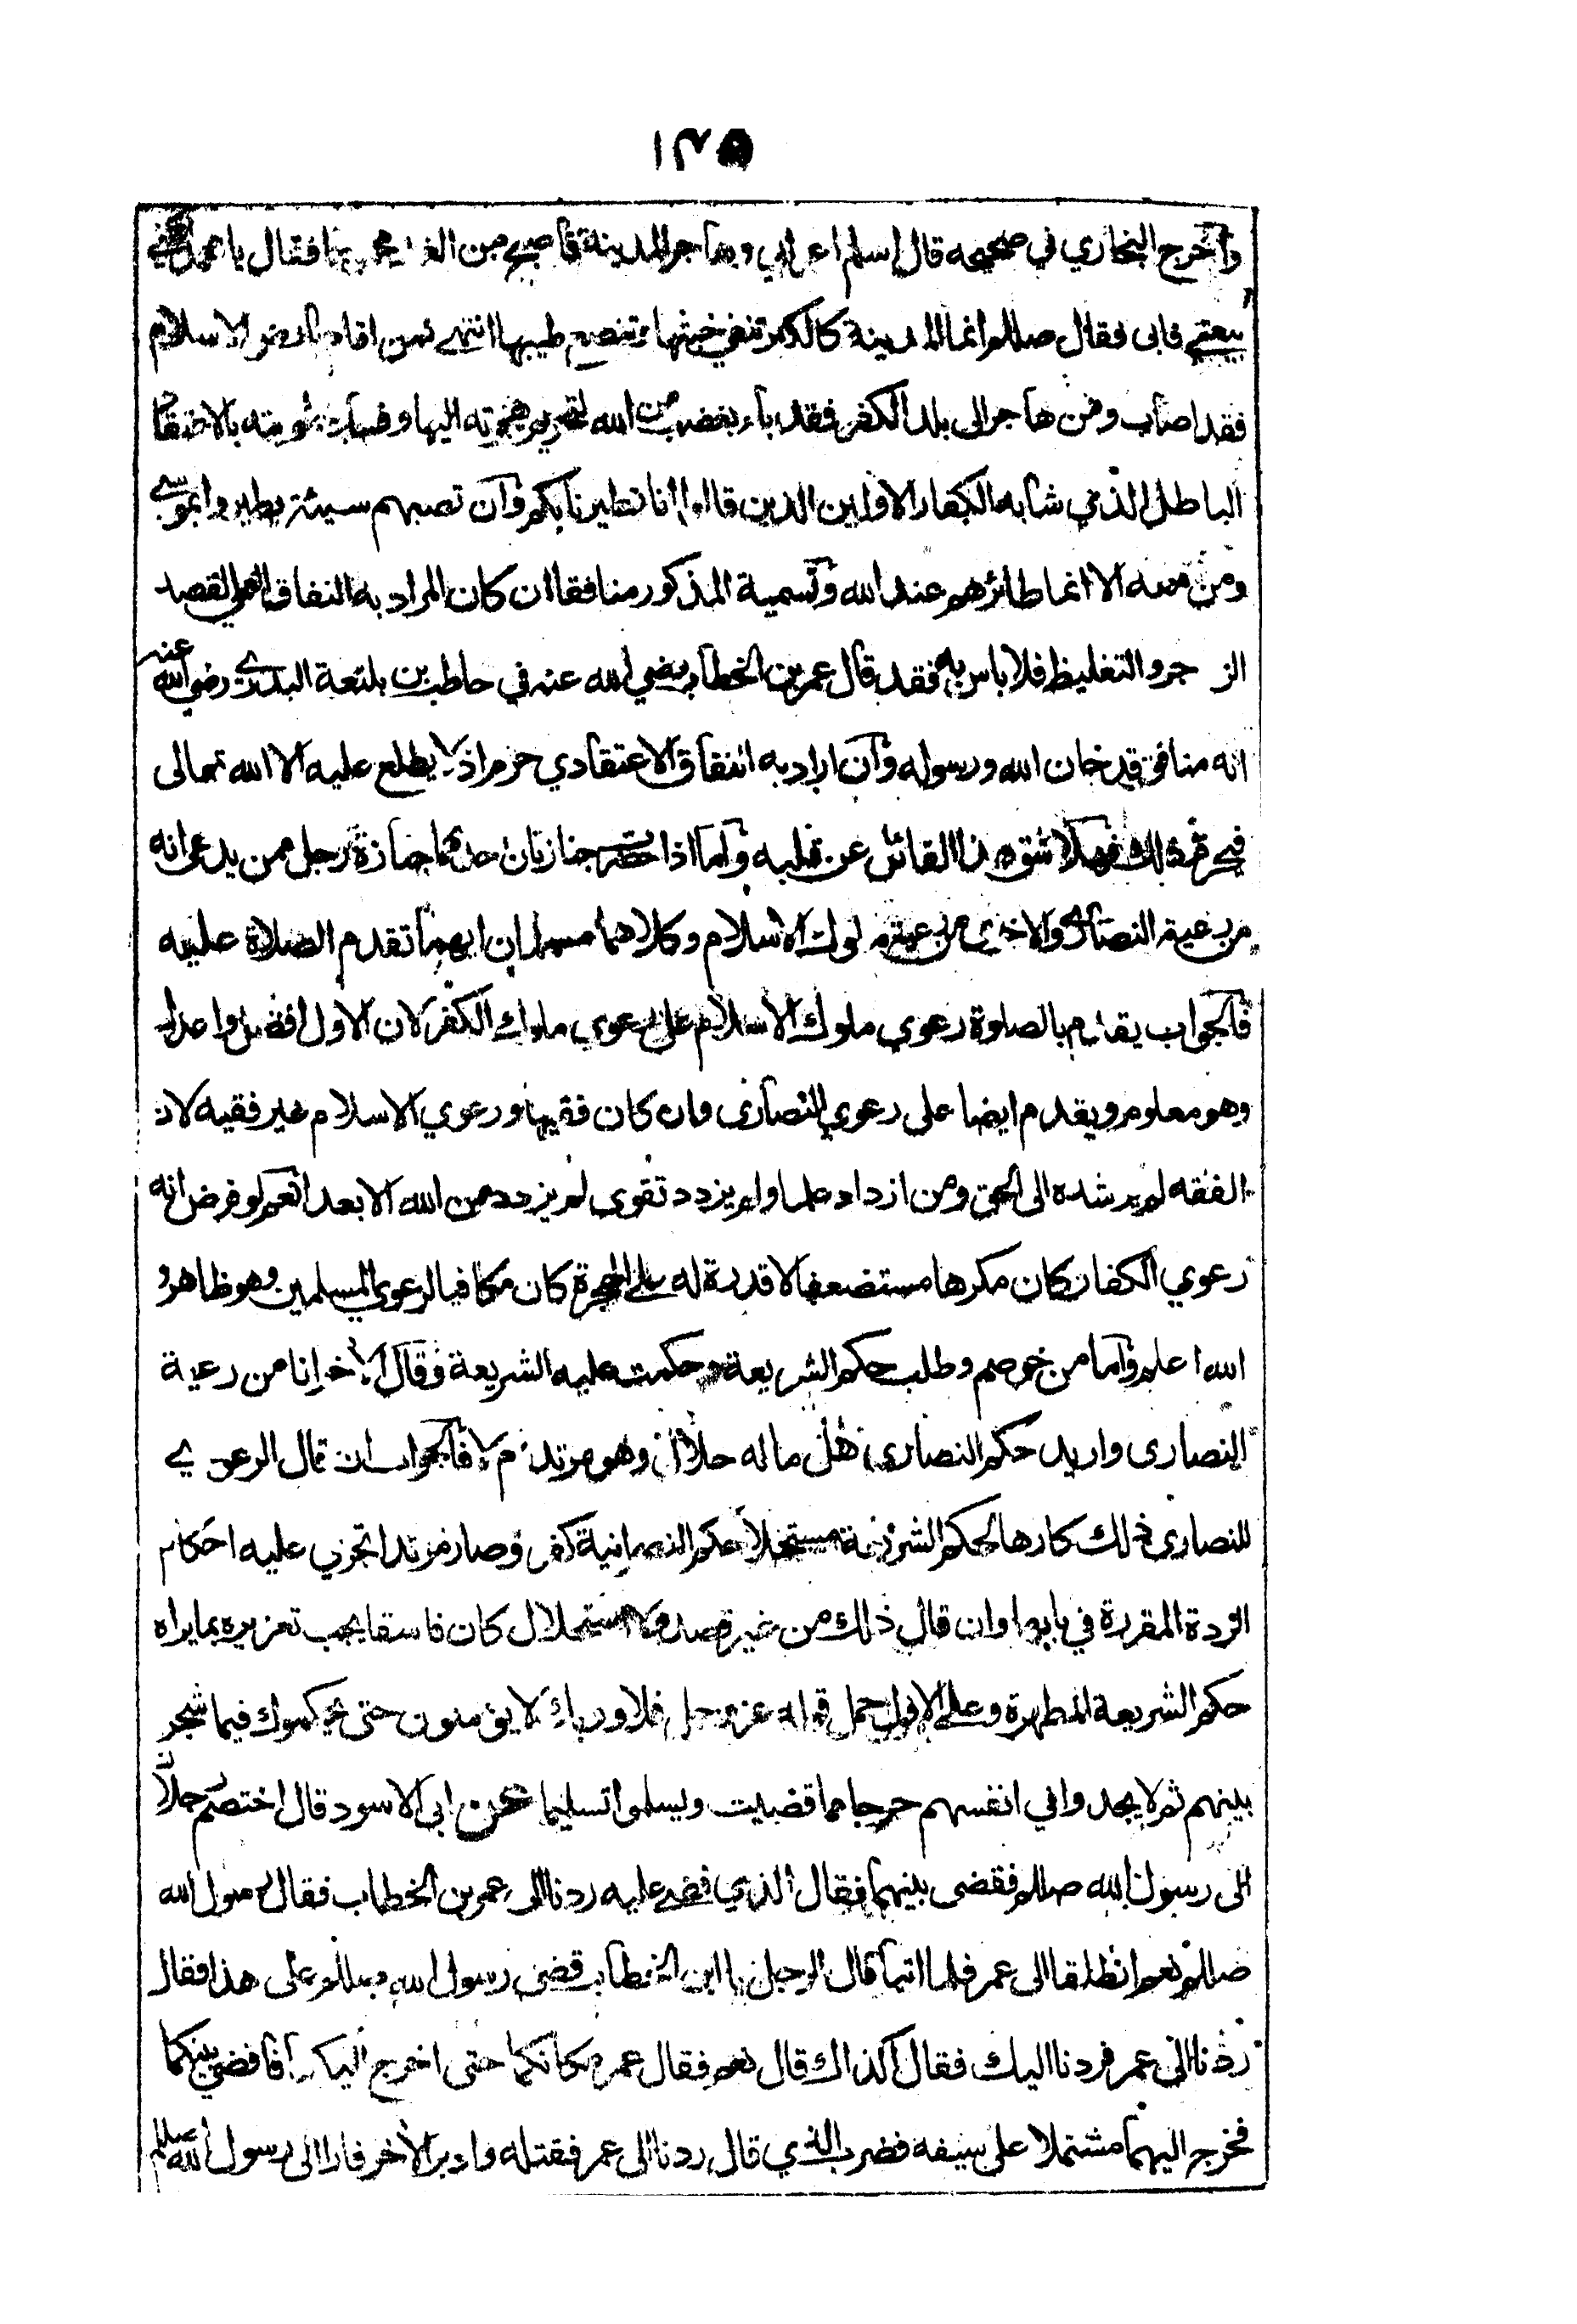 ١٣٥
وآخرج البخاري في صحيحه قال اسلم اعرابي وهاجر المدينة فاصبح من الغد محموما فقال يا محمد اقلني
بيعتي فابى فقال صللم انما المدينة كالكير تنفي خبثها وتنصع طيبها انتهى فمن اقام بارض الاسلام
فقد اصاب ومن هاجر الى بلد الكفر فقد باء بغضب من الله لتحريم هجرته اليها وفساد بالاعتقاد
الباطل الذي شابه الكفار الاولين الذين قالوا انا تطيرنا بكم وان تصبهم سيئة يطيروا بموسى
ومن معه الا انما طائرهم عند الله وتسمية المذكور منافقا ان كان المراد به النفاق العملي لقصد
الزجر والتغليظ فلا باس به فقد قال عمر بن الخطاب رضي الله عنه في حاطب بن بلتعة البدري رضي الله عنه
انه منافق قد خان الله ورسوله وان اراد به النفاق الاعتقادي حرم اذ لا يطلع عليه الا الله تعالى
فيحرم ذلك فهلا شق هذا القائل عن قلبه واما اذا حضرت جنازتان احدهما جنازة رجل ممن يدعى انه
من رعية النصارى والاخرى من رعية ملوك الاسلام وكلاهما مسلمان ايهما تقدم الصلاة عليه
فالجواب يقدم بالصلوة رعوي ملوك الاسلام على رعوي ملوك الكفر لان الاول افضل واعدل
وهو معلوم ويقدم ايضا على رعوي النصارى وان كان فقيها ورعوي الاسلام غير فقيه لان
الفقه لم يرشده الى الحق ومن ازداد علما ولم يزدد تقوى لم يزدد من الله الا بعدا نعم لو فرض انه
رعوي الكفار كان مكرها مستضعفا لا قدرة له على الهجرة كان مكافيا لرعوي المسلمين وهو ظاهر و
الله اعلم واما من خوصم وطلب حكم الشريعة وحكمت عليه الشريعة وقال لا انا من رعية
النصارى واريد حكم النصارى هل ماله حلال وهو مرتد ام لا فالجواب ان قال الرعوي
للنصارى ذلك كارها لحكم الشريعة مستحلا حكم النصرانية كفر وصار مرتدا تجري عليه احكام
الردة المقررة في بابها وان قال ذلك من غير قصد ولا استحلال كان فاسقا يجب تعزيره بما يراه
حكم الشريعة المطهرة وعلى الاول حمل قوله عز وجل فلا وربك لا يؤمنون حتى يحكموك فيما شجر
بينهم ثم لا يجدوا في انفسهم حرجا مما قضيت ويسلموا تسليما عن ابي الاسود قال اختصم رجلان
الى رسول الله صللم فقضى بينهما فقال الذي قضى عليه ردنا الى عمر بن الخطاب فقال رسول الله
صللم نعم انطلقا الى عمر فلما اتيا قال الرجل يا ابن الخطاب قضى رسول الله صللم على هذا فقال
ردنا الى عمر فردنا اليك فقال اكذاك قال نعم فقال عمر مكانكما حتى اخرج اليكما فاقضي بينكما
فخرج اليهما مشتملا على سيفه فضرب الذي قال ردنا الى عمر فقتله وادبر الاخر فارا الى رسول الله صللم